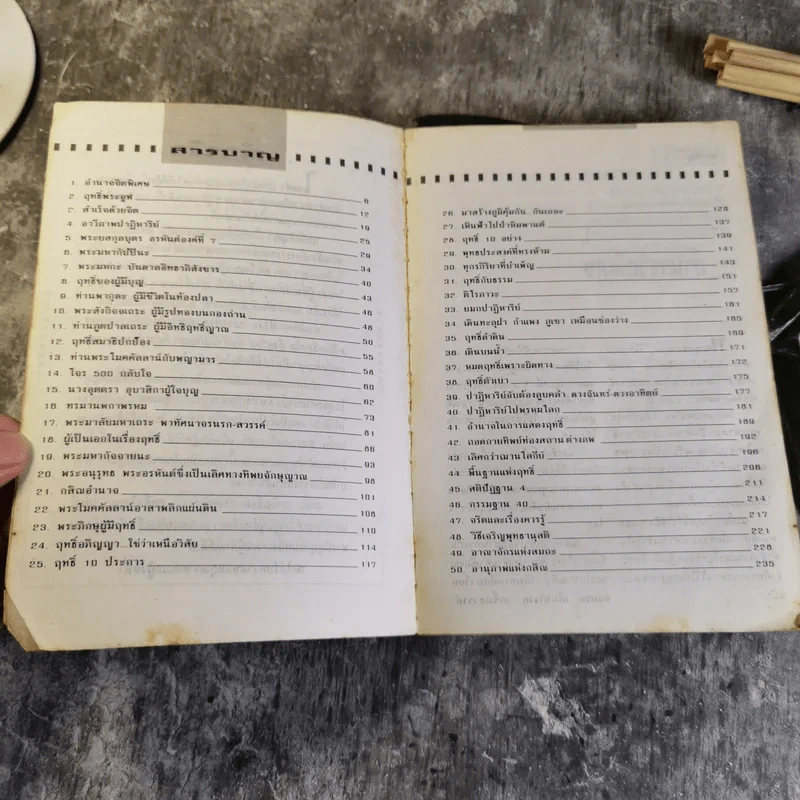 สารบาญ
1. อำนาจจิตพิเศษ
2. ฤทธิ์พระอูฐ 6
2. สำเร็จด้วยจิต 12
4. อาวีภาพปาฏิหาริย์ 19
5. พระยสกุลบุตร อรหันต์องค์ที่ 7 25
6. พระมหากัปปินะ 29
7. พระมหกะ บันดาลอิทธาภิสังขาร 34
8. ฤทธิ์ของผู้มีบุญ 40
9. ท่านพากุละ ผู้มีชีวิตในท้องปลา 43
10. พระสังกิจจเถระ ผู้มีรูปทองบนกองถ่าน 46
11. ท่านภูตปาลเถระ ผู้มีอิทธิฤทธิ์ญาณ 48
12. ฤทธิ์สมาธิปกป้อง 50
13. ท่านพระโมคคัลลาน์กับพญามาร 55
14. โจร 500 กลับใจ 58
15. นางอุตตรา อุบาสิกาผู้ใจบุญ 60
16. ทรมานพกาพรหม 62
17. พระมาลัยมหาเถระ พาทัศนาจรนรก-สวรรค์ 73
18. ผู้เป็นเอกในเรื่องฤทธิ์ 81
19. พระมหากัจจายนะ 86
20. พระอนุรุทธ พระอรหันต์ซึ่งเป็นเลิศทางทิพยจักษุญาณ 93
21. กสิณอำนาจ 98
22. พระโมคคัลลาน์อาสาพลิกแผ่นดิน 101
23. พระภิกษุผู้มีฤทธิ์ 106
24. ฤทธิ์อภิญญา...ใช่ว่าเหนือวิสัย 110
25. ฤทธิ์ 10 ประการ 114
117
26. มาสร้างภูมิคุ้มกัน กันเถอะ 128
27. เดินฟ้าไปป่าหิมพานต์ 137
28. ฤทธิ์ 10 อย่าง 139
29. พุทธประสงค์ที่ทรงห้าม 141
30. ทุกรกิริยาที่บำเพ็ญ 143
31. ฤทธิ์กับธรรม 151
32. ติโรภาวะ 157
33. ยมกปาฏิหาริย์ 161
34. เดินทะลุฝา กำแพง ภูเขา เหมือนช่องว่าง 165
35. ฤทธิ์ดำดิน 169
36. เดินบนน้ำ 171
37. หมดฤทธิ์เพราะยิดทาง 172
38. ฤทธิ์ตัวเบา 175
39. ปาฏิหาริย์จับต้องลูบคลำ ดวงจันทร์-ดวงอาทิตย์ 177
40. ปาฏิหาริย์ไปพรหมโลก 181
41. อำนาจในการแสดงฤทธิ์ 189
42. ถอดกายทิพย์ท่องสถานต่างภพ 192
43. เลิศกว่าฌานโลกีย์ 196
44. พื้นฐานแห่งฤทธิ์ 206
45. สติปัฏฐาน 4 211
46. กรรมฐาน 40 214
47. จริตและเรื่องควรรู้ 217
48. วิธีเจริญพุทธานุสติ 221
49. อาณาจักรแห่งสมถะ 228
50. อานุภาพแห่งกสิณ 235